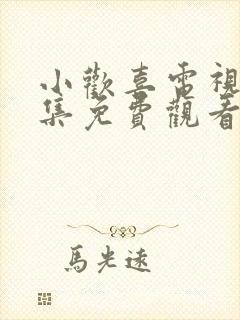 小歡喜電視
集免費觀看
馬光遠